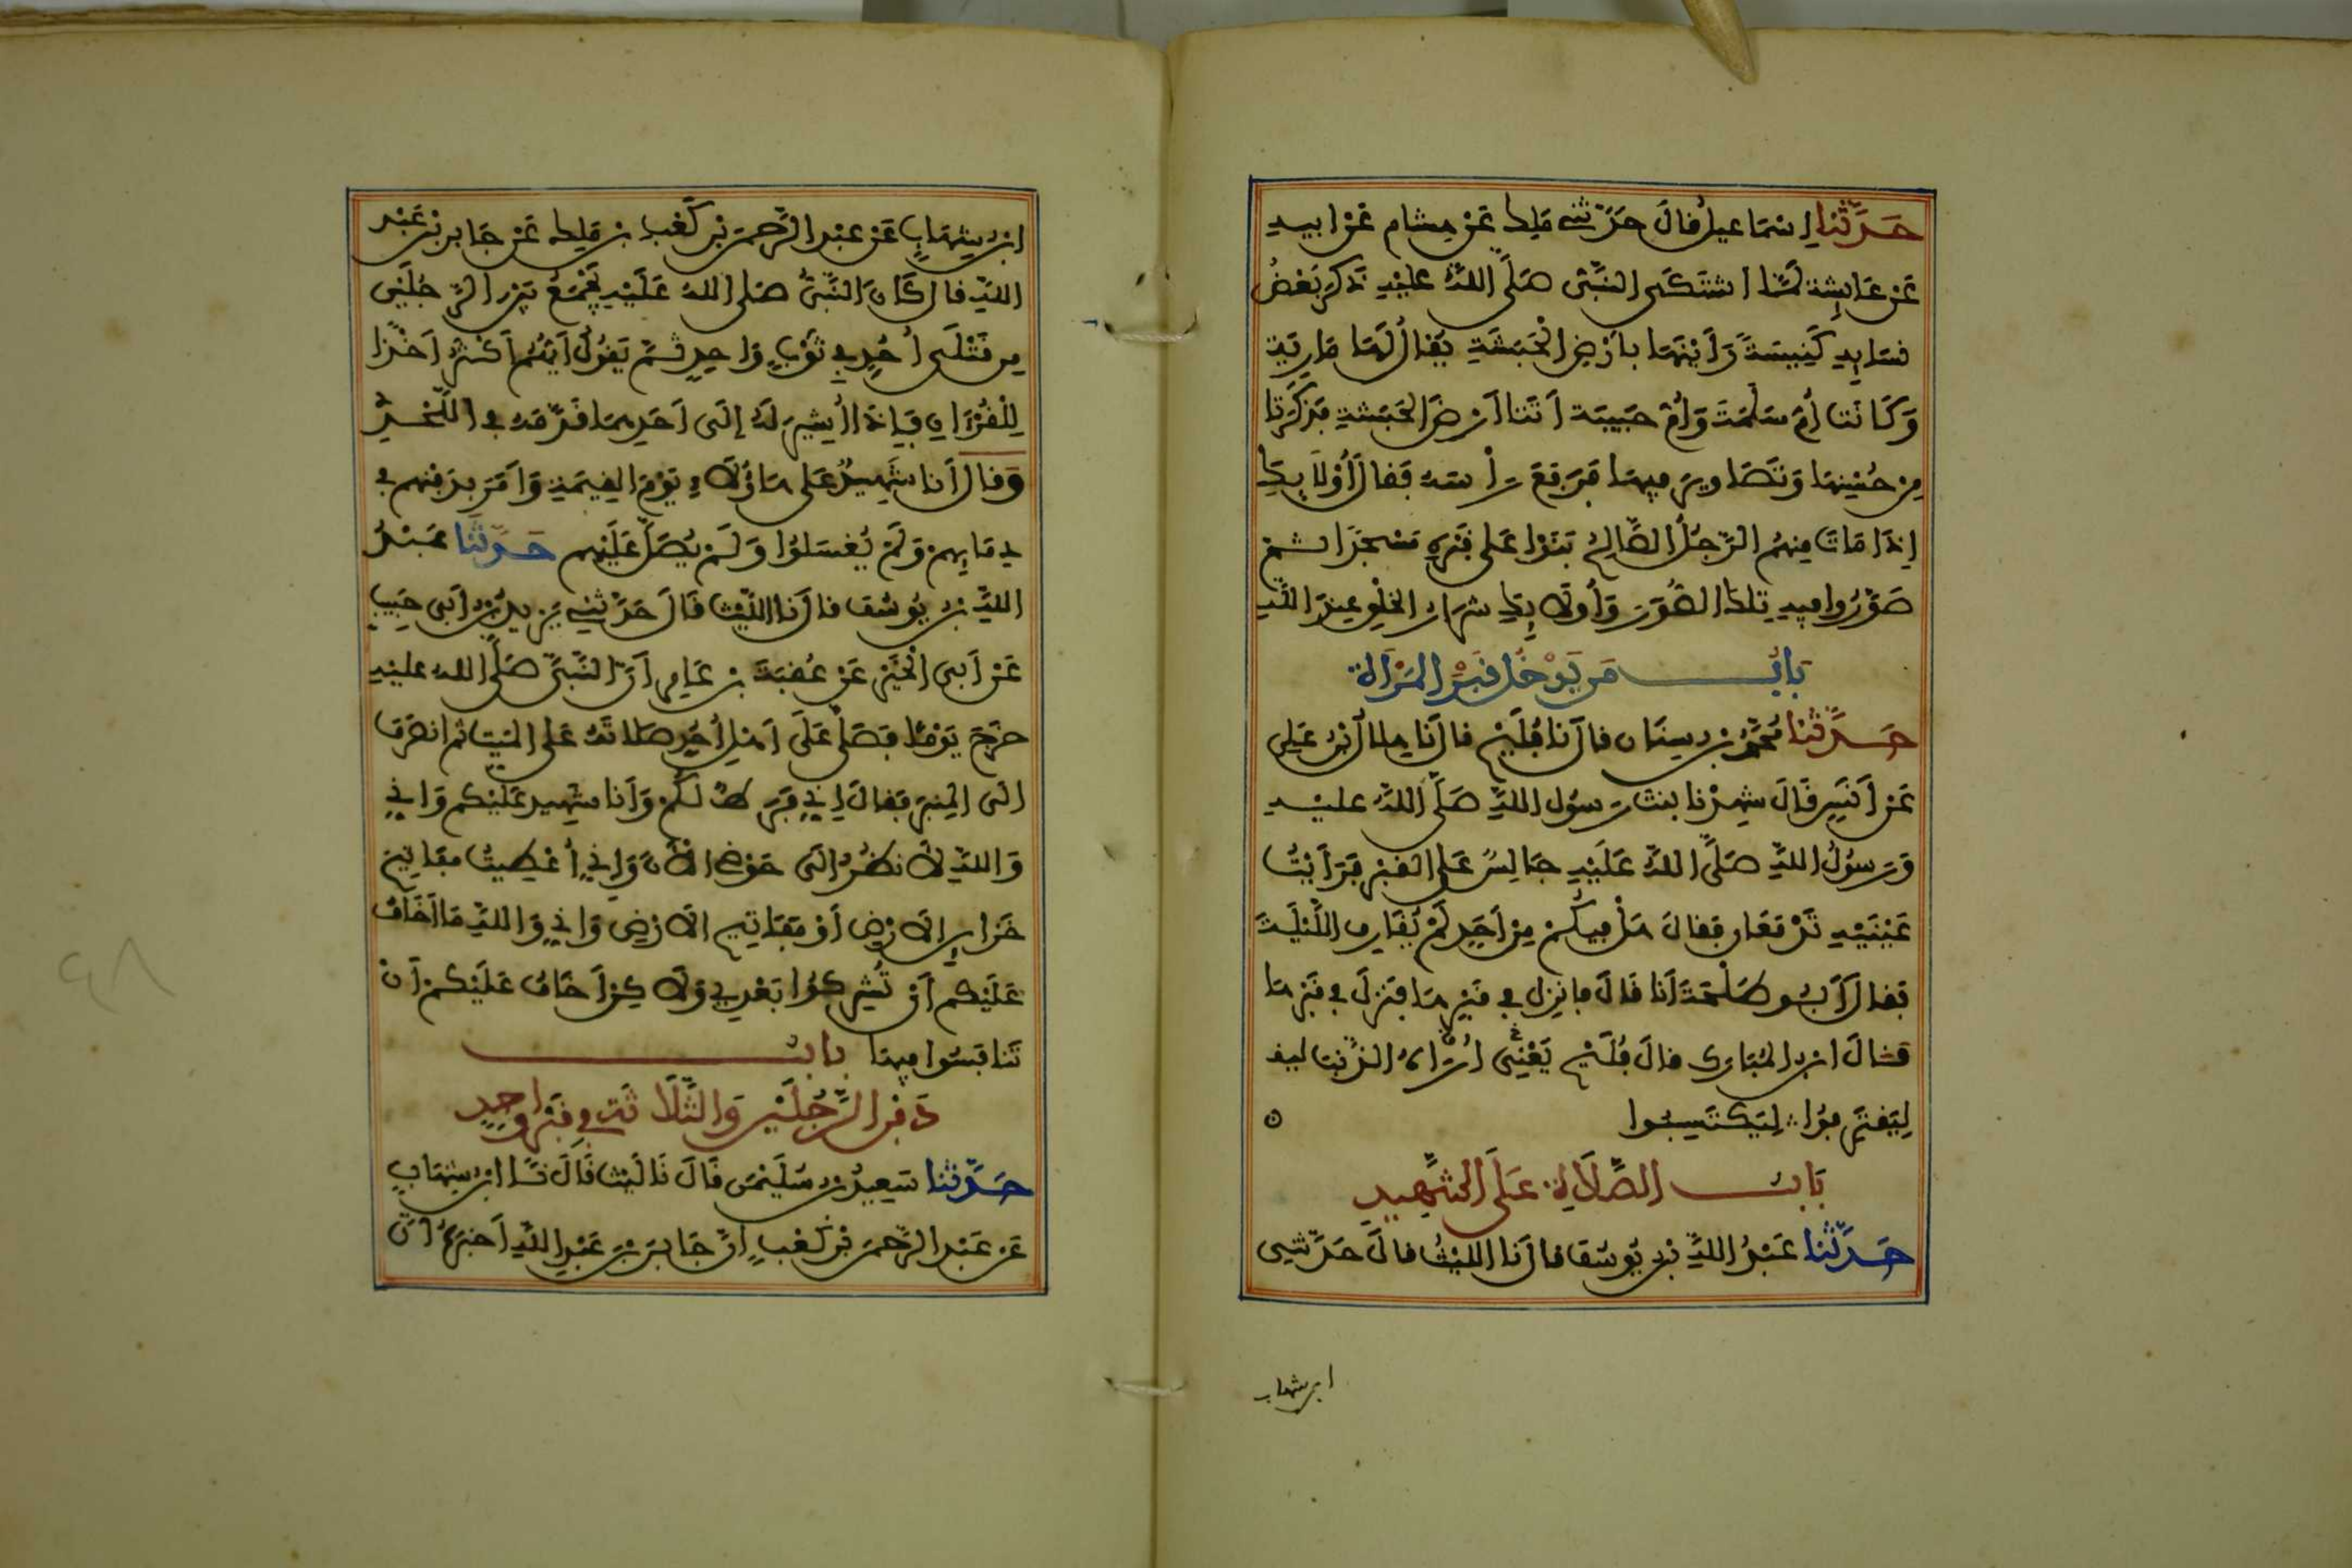 حَدَّثَنا إسْمَاعيل قالَ حَدّثني مَلِك عَنْ هشام عَنْ ابيهِ
عَنْ عَايِشة لمّا اشتكَى النَّبيّ صَلَّى اللهُ عليْهِ ذَكَرَ بَعْضُ
نسَايِهِ كَنِيسَةً رَأيْنهَا بأرْضِ الْحَبَشَةِ يُقالُ لَهَا مَارِيَة
وَكَانَت أمُّ سَلَمَةَ وَأمّ حَبيبَة أتَتا أرضَ الحَبَشةِ فذَكَرَتا
مِن حُسْنِهَا وَتَصَاوِيرَ فيهَا فَرَفَعَ رأسَهُ فَقالَ أوْلَايِكَ
إذَا مَاتَ مِنهُم الرّجُلُ الصَّالِحُ بَنَوْا عَلى قَبْرِهِ مَسْجِدًا ثم
صَوَّرُوا فيهِ تِلكَ الصُّوَرَ وَأولَايِكَ شرار الخَلْقِ عِندَ اللَّهِ
بَابُ مَن يَدْخُلُ قَبْرَ المَرْأة
حَدَّثَنا مُحمَّد بن سِنَان قالَ نا فُلَيْح قالَ نا هِلال بن عَلِي
عَنْ أنَسٍ قَالَ شهِدْنا بنتَ رَسُول اللَّهِ صَلَّى اللَّهُ عليهِ
وَرَسُولُ اللَّهِ صَلَّى اللَّهُ عَلَيْهِ جَالِسٌ عَلى القَبْرِ فَرَأيْتُ
عَيْنَيْهِ تَدْمَعَان فقالَ هَلْ فيكُم مِنْ أحَدٍ لَمْ يُقَارِف اللَّيْلَةَ
فقالَ أبُو طَلْحَةَ أنَا قَالَ فانزِل في قَبْرِهَا فنَزَلَ في قَبْرِهَا
قالَ ابن المُبَارَك قالَ فُلَيْح يَعْنِي أُرَاهُ الذَّنب
لِيَقْتَرِفُوا لِيَكْتَسِبُوا
بَابُ الصَّلَاةِ عَلَى الشَّهِيدِ
حَدَّثَنا عَبْدُ اللَّهِ بن يُوسُف قالَ نا الليْثُ قالَ حَدَّثَنِي
ابن شهاب
ابن شِهَابٍ عَنْ عبْد الرَّحمَن بْن كَعْب بن مَلِك عَنْ جَابر بْن عَبْد
اللَّهِ قالَ كَانَ النَّبيُّ صَلى اللهُ عَلَيْهِ يَجْمَعُ بَيْن الرَّجُلَيْن
مِن قَتْلَى أُحُدٍ في ثَوْبٍ وَاحِدٍ ثُمّ يَقُولُ أيُّهُم أكْثَرُ أخْذًا
لِلْقُرْءَانِ فَإذَا أُشِيرَ لَهُ إلَى أحَدِهمَا قَدَّمَهُ في اللَّحْدِ
وَقالَ أنَا شَهِيدٌ عَلى هَاؤُلَاءِ يَوْمَ القِيَمَةِ وَأمَرَ بدَفْنِهِم في
دِمَايِهِم وَلَمْ يُغْسَلُوا وَلَمْ يُصَلَّ عَلَيْهِم حَدَّثَنَا عَبْدُ
اللَّهِ بن يُوسُف قالَ نا اللَّيْث قَالَ حَدَّثَنِي يَزيدُ بن أبي حَبِيب
عَنْ أبي الْخَيْرِ عَنْ عُقبَةَ بن عَامِرٍ أنَّ النَّبيَّ صَلَّى اللهُ عليْهِ
خَرَجَ يَوْمًا فَصَلَّى عَلَى أهْلِ أُحُدٍ صَلاتَهُ عَلى المَيّتِ ثم انصَرَف
الَى المِنبَرِ فقالَ إني فَرَطٌ لَكُمْ وَأنا شهِيد عَلَيْكم وَإني
وَاللَّهِ لَأنظُرُ الَى حَوْضي الأنَ وَإني أُعْطِيتُ مفَاتِيحَ
خَزَايِن الأَرْضِ أوْ مَفَاتِيح الأَرْضِ وَإني وَاللَّهِ مَا أخَافُ
عَلَيْكم أن تُشْرِكُوا بَعْدِي وَلَكِنْ أخَافُ عَلَيْكُم أنْ
تَنافَسُوا فيهَا بابُ
دَفْنِ الرَّجُلَيْنِ وَالثَّلَاثَةِ في قَبْرٍ وَاحِدٍ
حَدَّثَنا سَعِيدُ بن سُلَيْمَن قَالَ نَا لَيْث قَالَ نَا ابن شِهَابٍ
عَن عَبْد الرَّحمَن بْن كَعْبٍ أنَّ جَابِرَ بْنَ عَبْدِ اللَّهِ أخبَرَهُ أنَّ